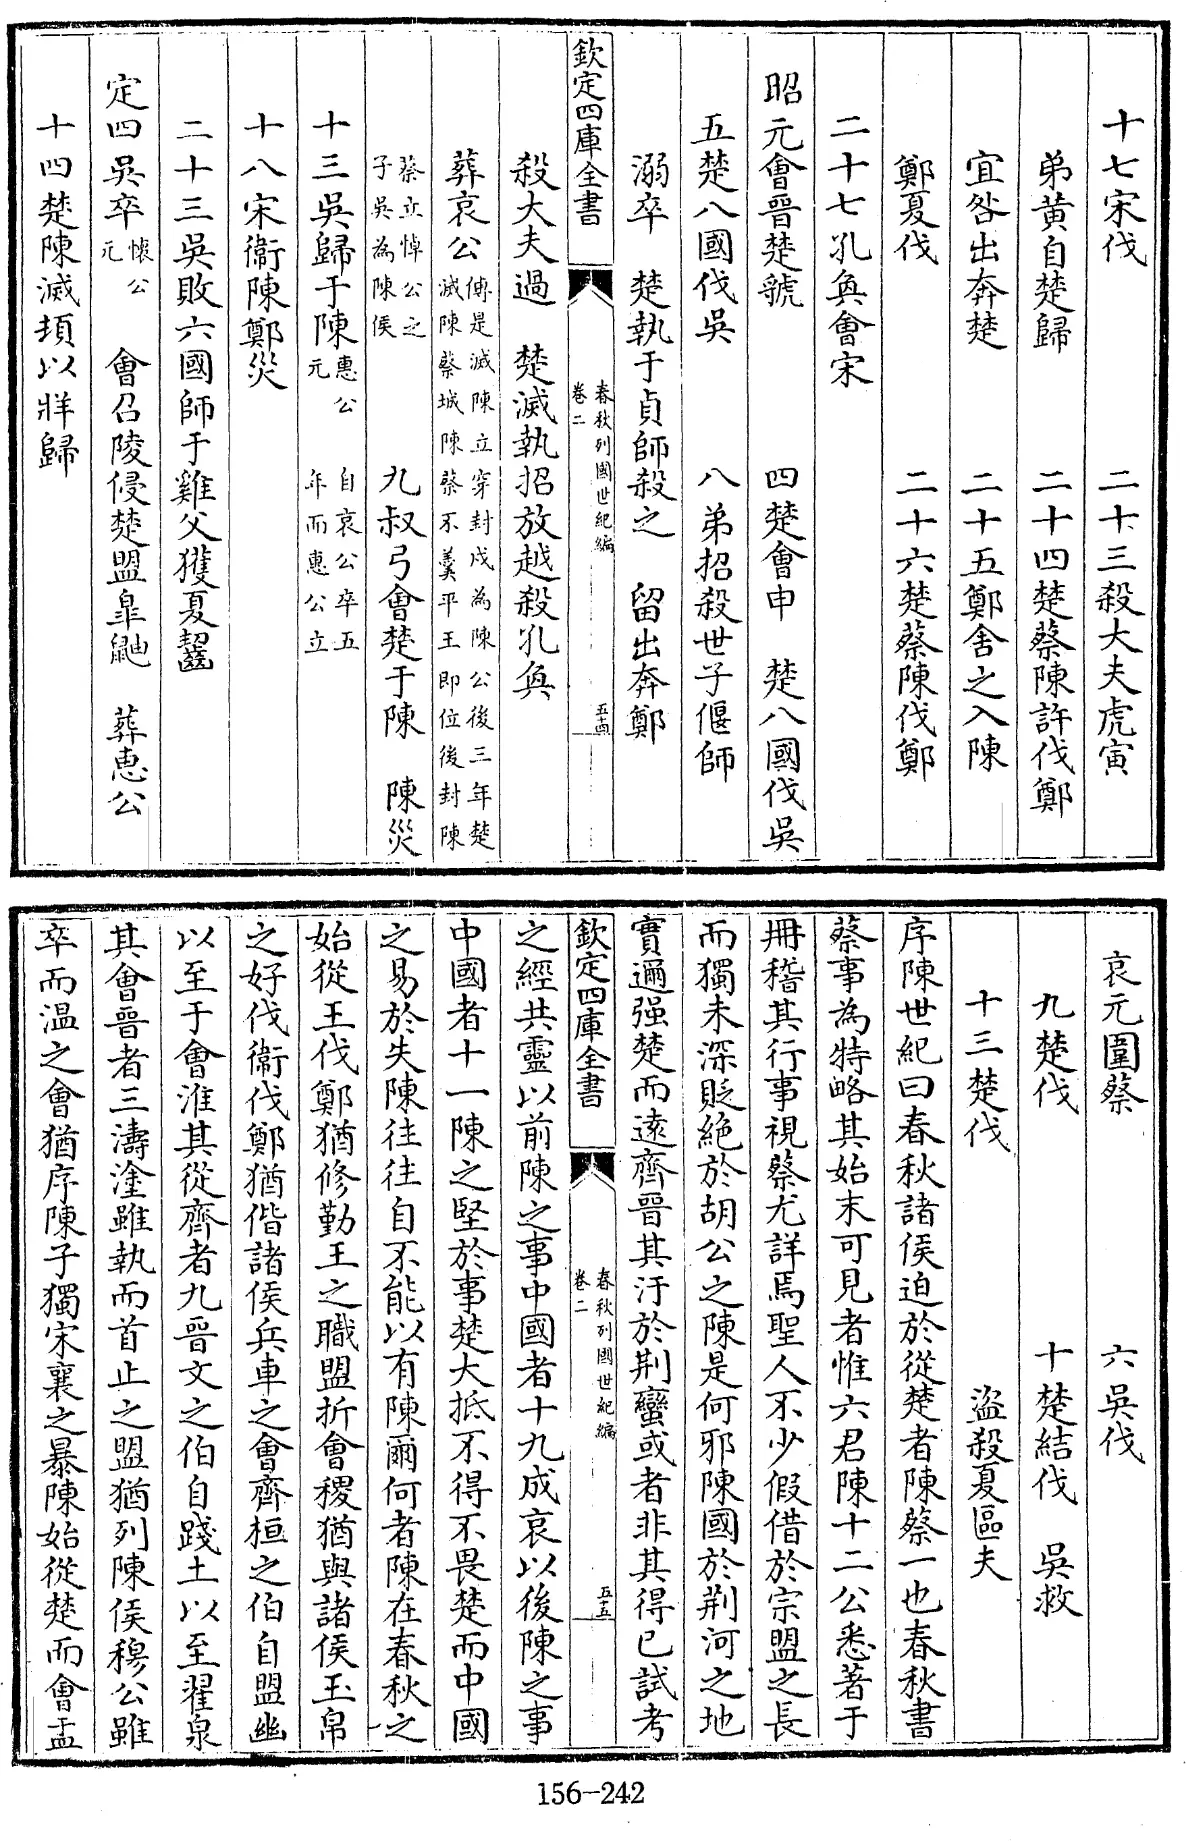 十七宋伐　二十三殺大夫虎寅
弟黄自楚歸　二十四楚蔡陳許伐鄭
宜咎出奔楚　二十五鄭舍之入陳
鄭夏伐　二十六楚蔡陳伐鄭
二十七孔奐會宋
昭元會晉楚虢　四楚會申　楚八國伐吳
五楚八國伐吳　八弟招殺世子偃師
溺卒　楚執于貞師殺之　留出奔鄭
欽定四庫全書　春秋列國世紀編　卷二　五十四
殺大夫過　楚滅執招放越殺孔奐
葬哀公　傳是滅陳立穿封戌為陳公後三年楚滅陳蔡城陳蔡不羹平王即位後封陳
蔡立悼公之子吳為陳侯　九叔弓會楚于陳　陳災
十三吳歸于陳　惠公元　自哀公卒五年而惠公立
十八宋衞陳鄭災
二十三吳敗六國師于雞父獲夏齧
定四吳卒　懷公元　會召陵侵楚盟臯鼬　葬惠公
十四楚陳滅頓以牂歸
哀元圍蔡　六吳伐
九楚伐　十楚結伐　吳救
十三楚伐　盜殺夏區夫
序陳世紀曰春秋諸侯迫於從楚者陳蔡一也春秋書
蔡事為特略其始末可見者惟六君陳十二公悉著于
冊稽其行事視蔡尤詳焉聖人不少假借於宗盟之長
而獨未深貶絶於胡公之陳是何邪陳國於荆河之地
實邇强楚而逺齊晉其汙於荆蠻或者非其得已試考
欽定四庫全書　春秋列國世紀編　卷二　五十五
之經共靈以前陳之事中國者十九成哀以後陳之事
中國者十一陳之堅於事楚大抵不得不畏楚而中國
之易於失陳往往自不能以有陳爾何者陳在春秋之
始從王伐鄭猶修勤王之職盟折會稷猶與諸侯玉帛
之好伐衞伐鄭猶偕諸侯兵車之會齊桓之伯自盟幽
以至于會淮其從齊者九晉文之伯自踐土以至翟泉
其會晉者三濤塗雖執而首止之盟猶列陳侯穆公雖
卒而温之會猶序陳子獨宋襄之暴陳始從楚而會盂
156-242